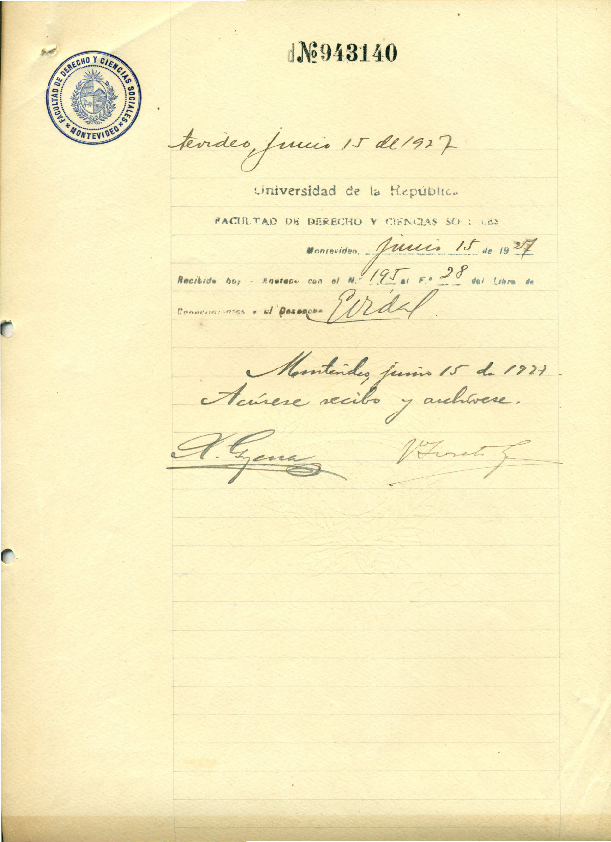 dNº943140
FACULTAD DE DERECHO Y CIENCIAS SOCIALES
MONTEVIDEO
tevideo, junio 15 de 1927
Universidad de la República
FACULTAD DE DERECHO Y CIENCIAS SO LES
Montevideo, junio 15 de 1927
Recibido hoy - Anotado con el N.º 195 al F.º 28 del Libro de
al Despacho
Montevideo, junio 15 de 1927.
Acúsese recibo y archívese.